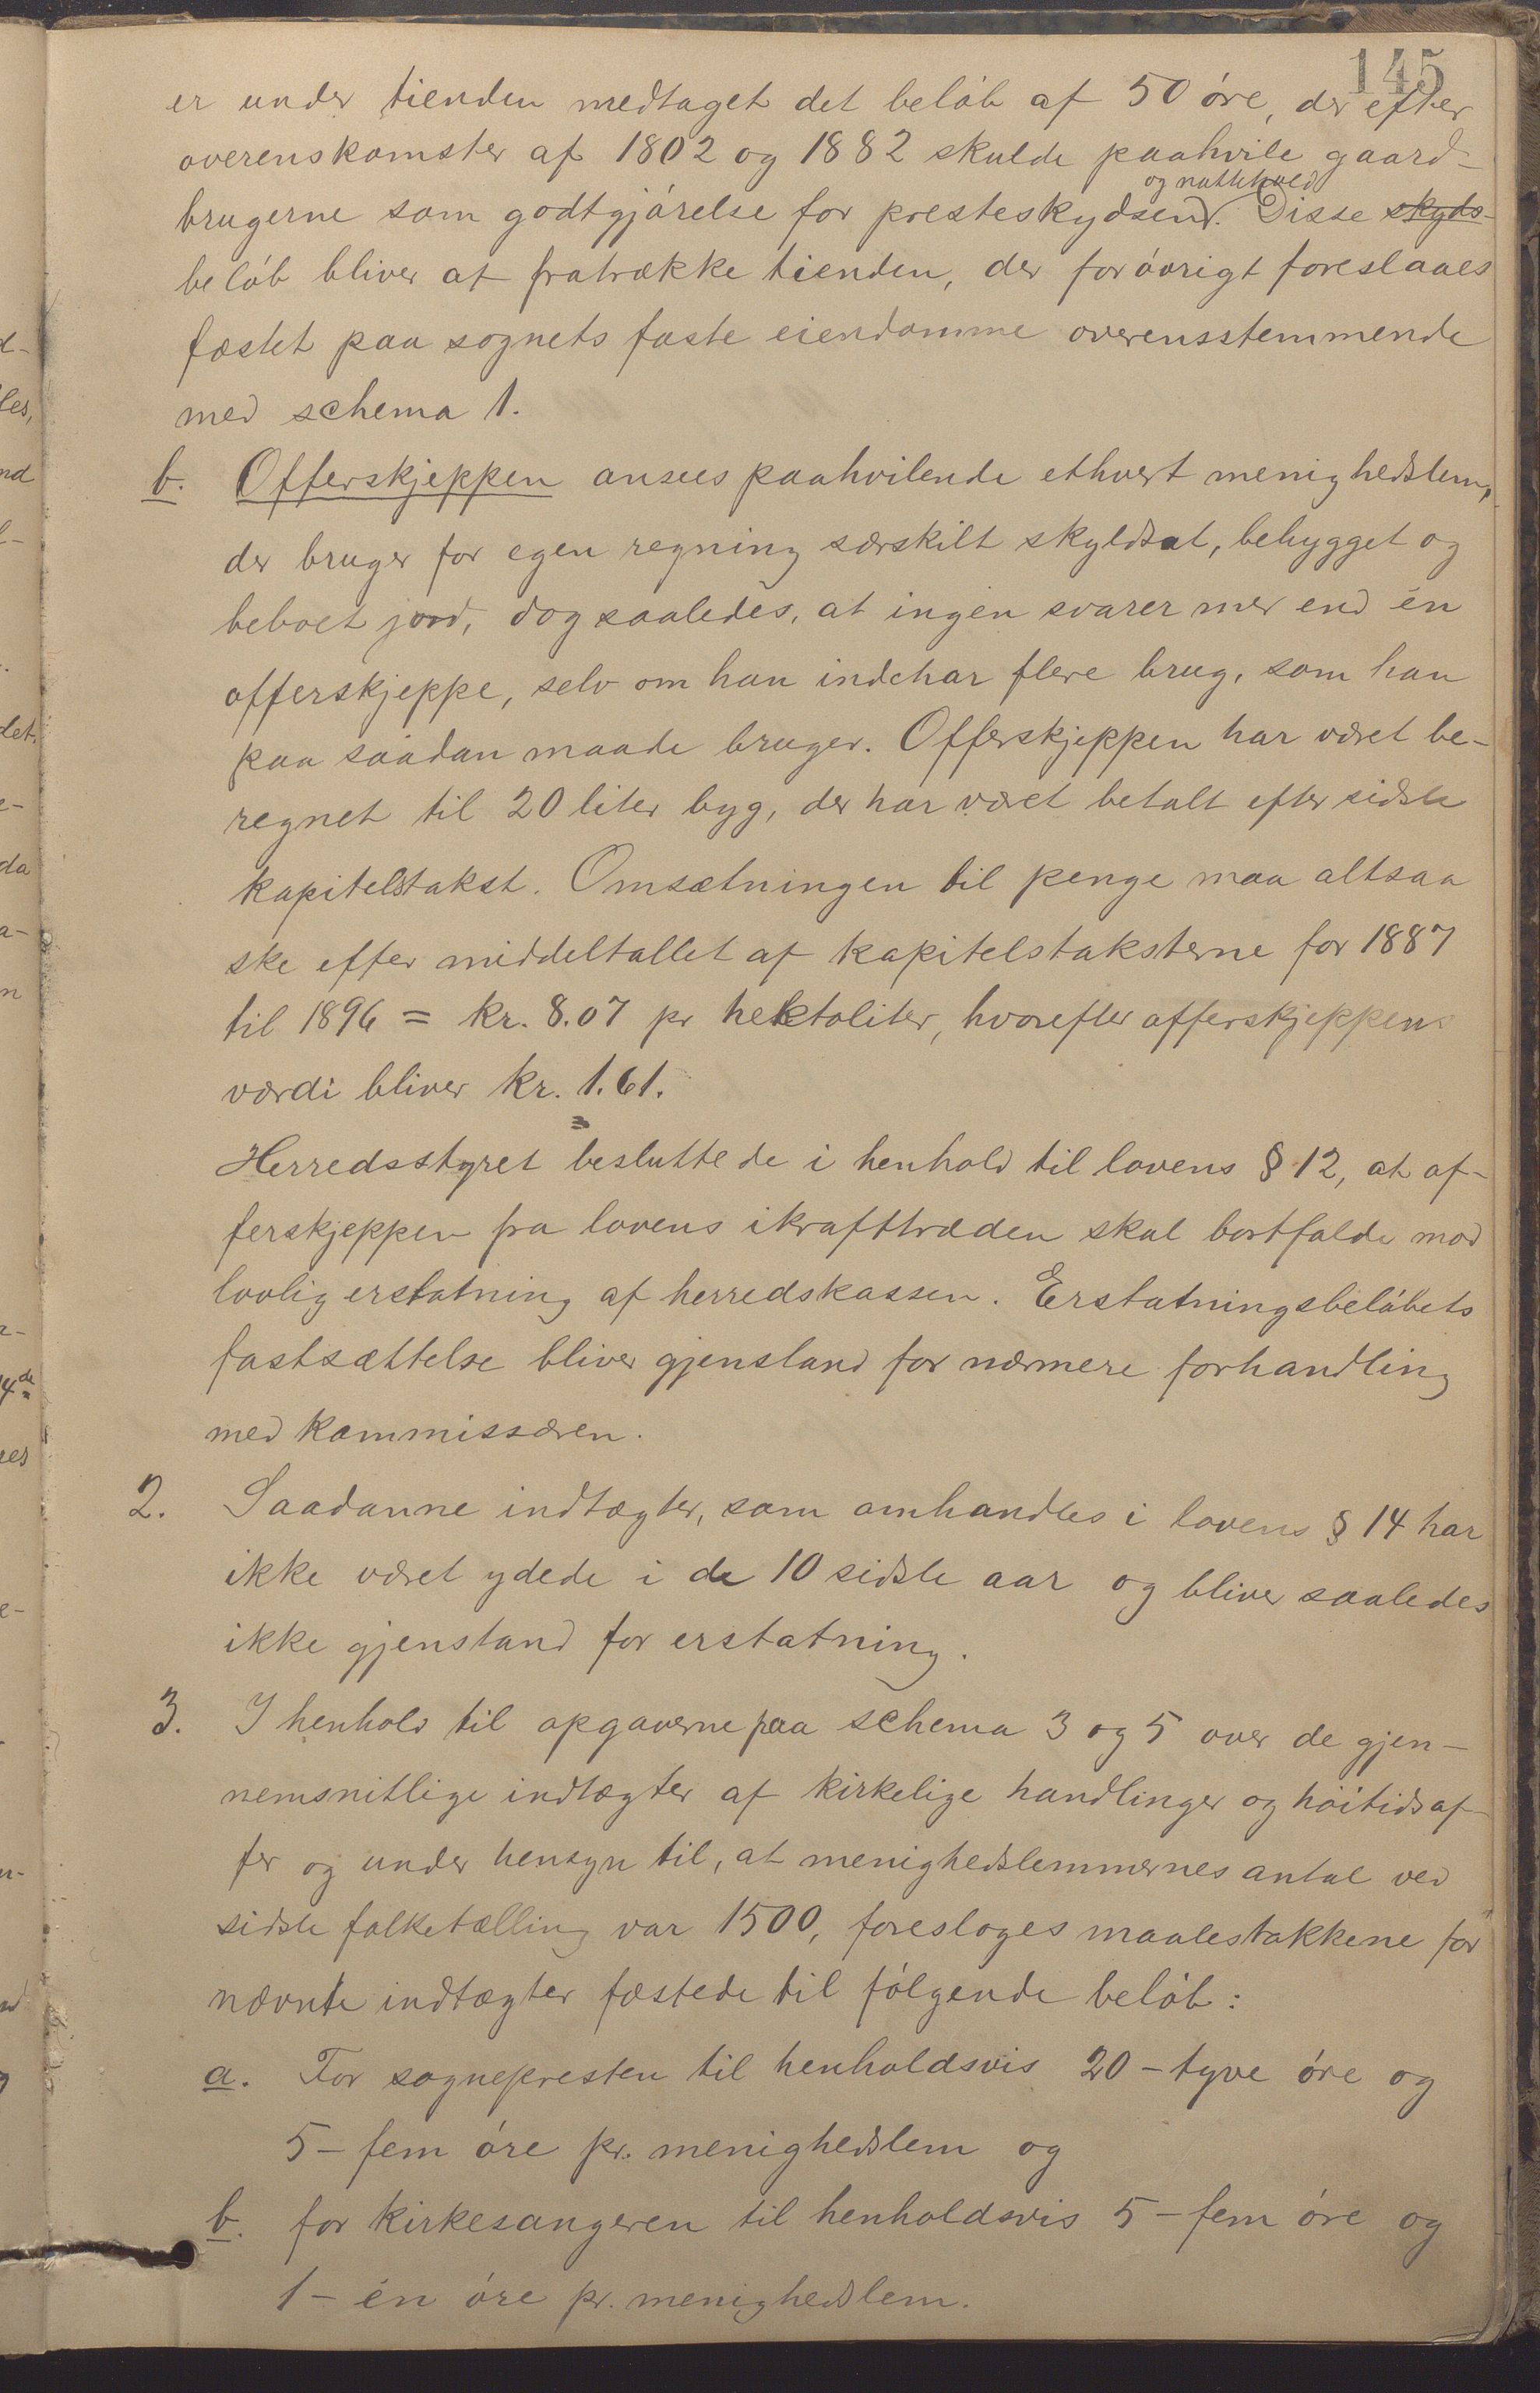 145
er under tienden medtaget det beløb af 50 øre, der efter
overenskomster af 1802 og 1882 skulde paahvile gaard-
brugerne som godtgjørelse for presteskydsen og nattehold. Disse skyds-
beløb bliver at fratrække tienden, der forøvrigt foreslaaes
fæstet paa sognets faste eiendomme overensstemmende
med schema 1.
b. Offerskjeppen ansees paahvilende ethvert menighedslem,
der bruger for egen regning særskilt skyldsat, bebygget og
beboet jord, dog saaledes, at ingen svarer mer end én
offerskjeppe, selv om han indehar flere brug, som han
paa saadan maade bruger. Offerskjeppen har været be-
regnet til 20 liter byg, der har været betalt efter sidste
kapitelstakst. Omsætningen til penge maa altsaa
ske efter middeltallet af kapitelstaksterne for 1887
til 1896 = kr. 8.07 pr hektoliter, hvorefter offerskjeppens
værdi bliver kr. 1.61.
Herredsstyret besluttede i henhold til lovens § 12, at of-
ferskjeppen fra lovens ikrafttræden skal bortfalde mod
lovlig erstatning af herredskassen. Erstatningsbeløbets
fastsættelse bliver gjenstand for nærmere forhandling
med kommissæren.
2. Saadanne indtægter, som omhandles i lovens § 14 har
ikke været ydede i de 10 sidste aar og bliver saaledes
ikke gjenstand for erstatning.
3. I henhold til opgaverne paa schema 3 og 5 over de gjen-
nemsnitlige indtægter af kirkelige handlinger og høitidsof-
fer og under hensyn til, at menighedslemmernes antal ved
sidste folketælling var 1500, foresloges maalestokkene for
nævnte indtægter fæstede til følgende beløb:
a. For sognepresten til henholdsvis 20 - tyve øre og
5 - fem øre pr. menighedslem og
b. for kirkesangeren til henholdsvis 5 - fem øre og
1 - én øre pr. menighedslem.